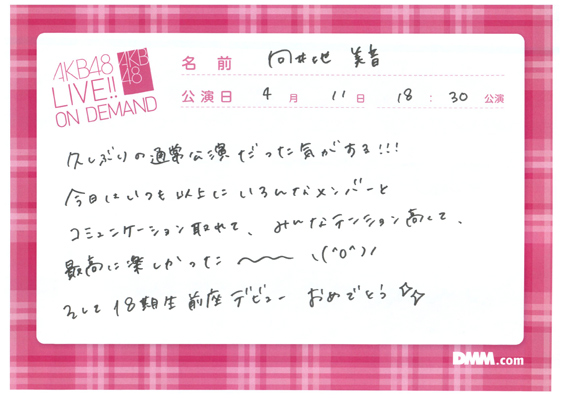 AKB48
LIVE!!
ON DEMAND
AKB
48
名前 向井地 美音
公演日 4月 11日 18:30公演
久しぶりの通常公演だった気がする!!!
今日はいつも以上にいろんなメンバーと
コミュニケーション取れて、みんなテンション高くて、
最高に楽しかった〜〜 \(^o^)/
そして18期生前座デビューおめでとう☆☆
DMM.com